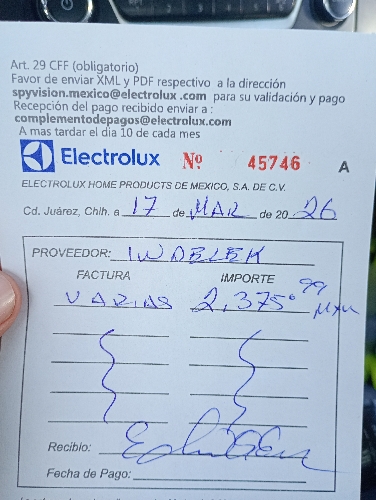 Art. 29 CFF (obligatorio)
Favor de enviar XML y PDF respectivo a la dirección
spyvision.mexico@electrolux .com para su validación y pago
Recepción del pago recibido enviar a :
complementodepagos@electrolux.com
A mas tardar el dia 10 de cada mes
Electrolux Nº 45746 A
ELECTROLUX HOME PRODUCTS DE MEXICO, S.A. DE C.V.
Cd. Juárez, Chih. a 17 de MAR de 20 26
PROVEEDOR: INDELEK
FACTURA IMPORTE
VARIAS 2,375.99 MXN
Recibio:
Fecha de Pago: